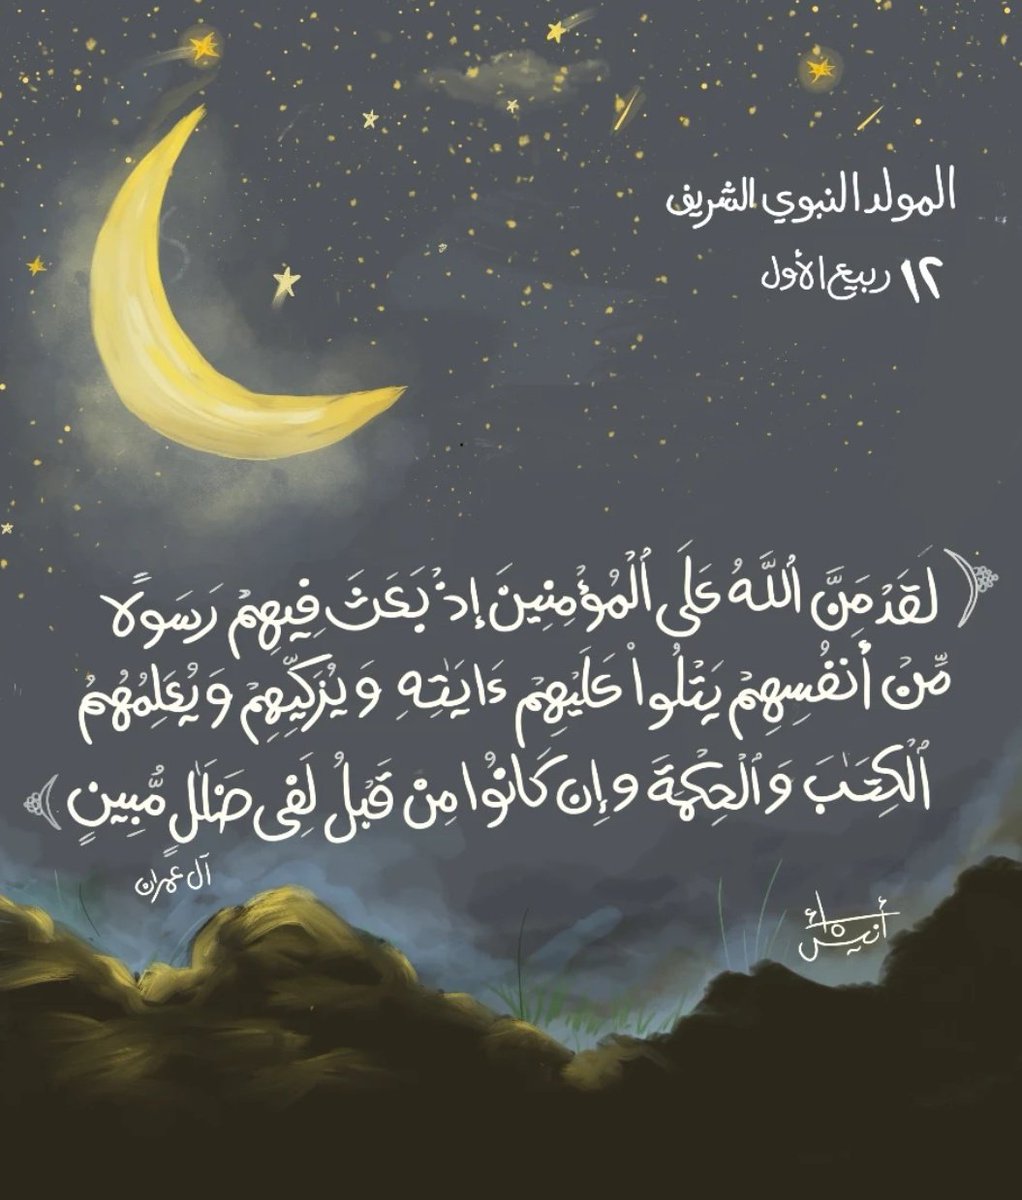 المولد النبوي الشريف
١٢ ربيع الأول
﴿ لَقَدْ مَنَّ ٱللَّهُ عَلَى ٱلْمُؤْمِنِينَ إِذْ بَعَثَ فِيهِمْ رَسُولًا
مِّنْ أَنفُسِهِمْ يَتْلُوا۟ عَلَيْهِمْ ءَايَٰتِهِۦ وَيُزَكِّيهِمْ وَيُعَلِّمُهُمُ
ٱلْكِتَٰبَ وَٱلْحِكْمَةَ وإِن كَانُوا مِن قَبْلُ لَفِى ضَلَٰلٍ مُّبِينٍ ﴾
آل عمران